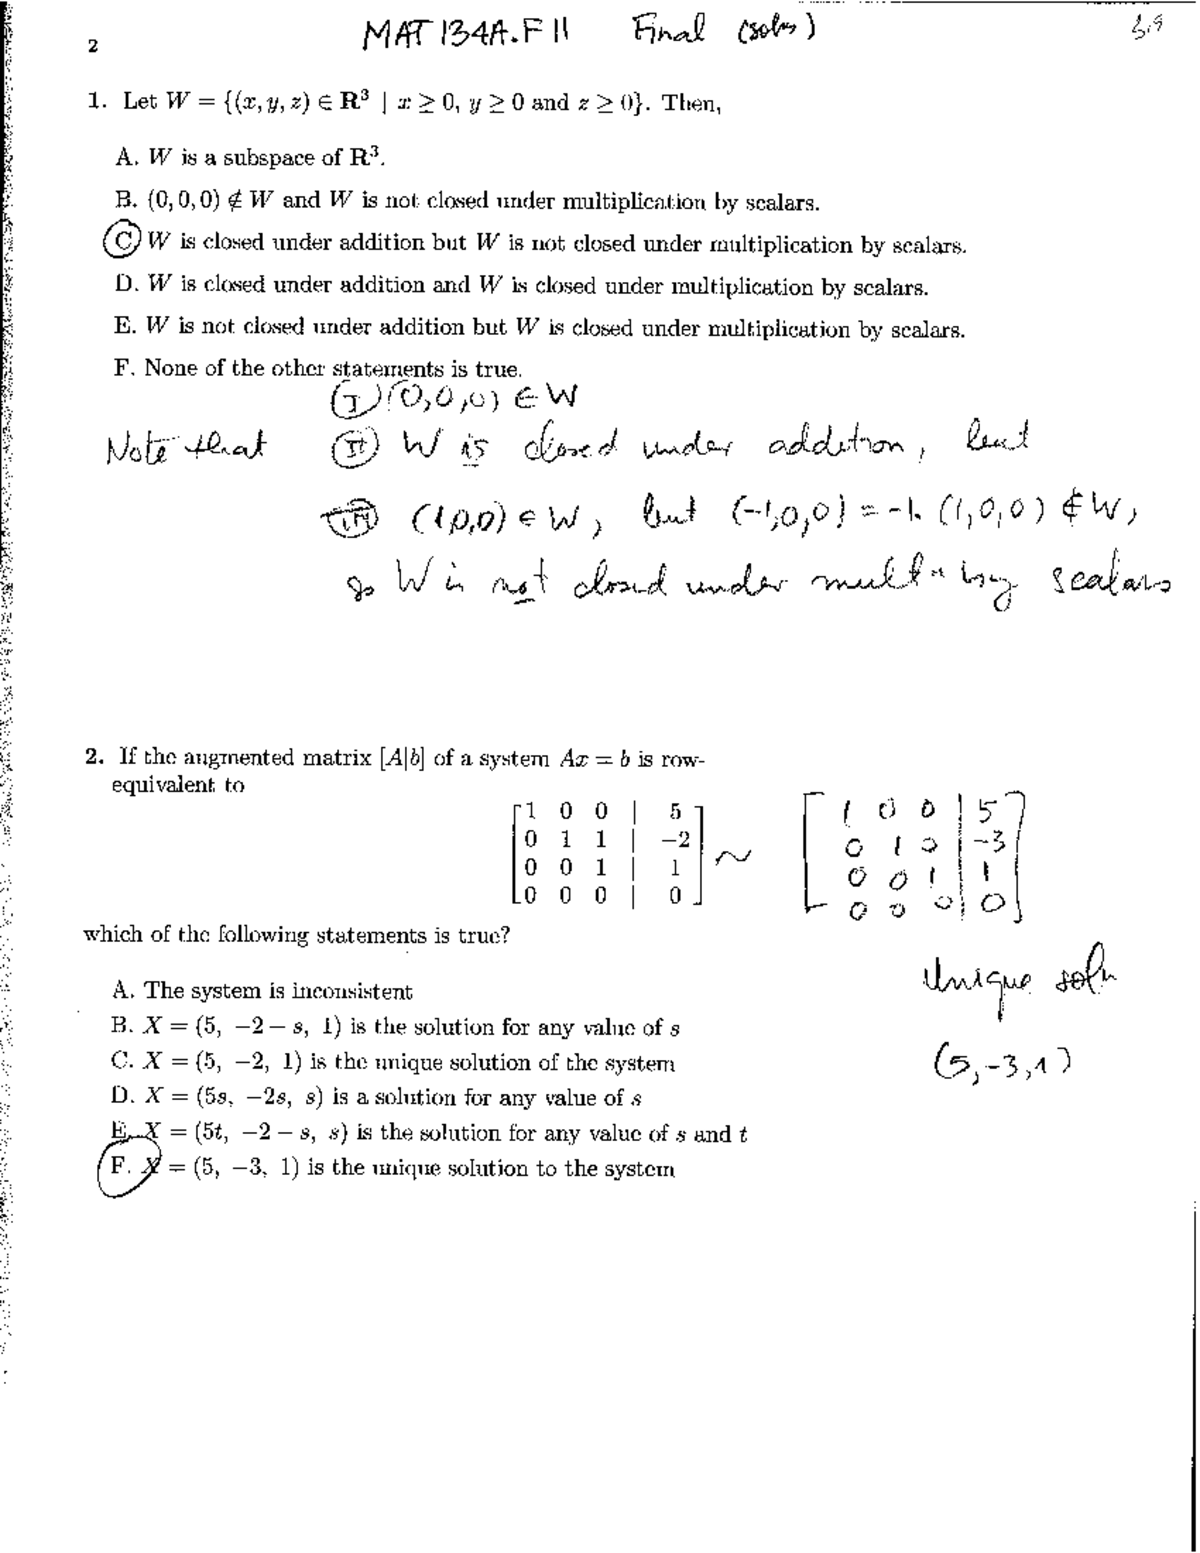 MAT 134A.F11 Final (solns)
2
1. Let W = {(x, y, z) ∈ R³ | x ≥ 0, y ≥ 0 and z ≥ 0}. Then,
A. W is a subspace of R³.
B. (0, 0, 0) ∉ W and W is not closed under multiplication by scalars.
C W is closed under addition but W is not closed under multiplication by scalars.
D. W is closed under addition and W is closed under multiplication by scalars.
E. W is not closed under addition but W is closed under multiplication by scalars.
F. None of the other statements is true.
(I) (0,0,0) ∈ W
Note that (II) W is closed under addition, but
(III) (1,0,0) ∈ W, but (-1,0,0) = -1. (1,0,0) ∉ W,
so W is not closed under multn by scalars
2. If the augmented matrix [A|b] of a system Ax = b is row-
equivalent to
[1 0 0 | 5] [1 0 0 | 5]
[0 1 1 | −2] ~ [0 1 0 | -3]
[0 0 1 | 1] [0 0 1 | 1]
[0 0 0 | 0] [0 0 0 | 0]
which of the following statements is true?
Unique soln
A. The system is inconsistent
B. X = (5, −2 − s, 1) is the solution for any value of s
C. X = (5, −2, 1) is the unique solution of the system
(5,-3,1)
D. X = (5s, −2s, s) is a solution for any value of s
E. X = (5t, −2 − s, s) is the solution for any value of s and t
F. X = (5, −3, 1) is the unique solution to the system